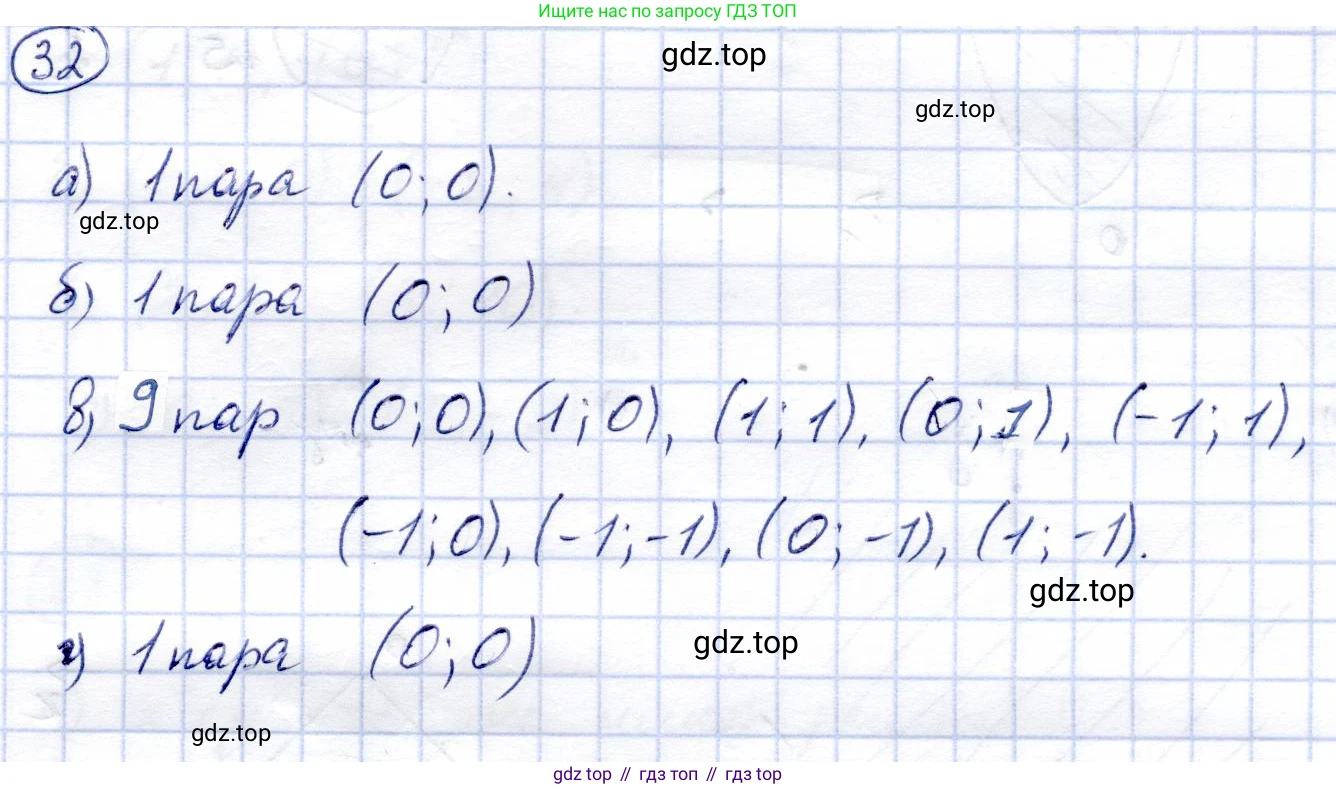 Ищите нас по запросу ГДЗ ТОП
32
gdz.top
gdz.top
а) 1 пара (0; 0).
gdz.top
б) 1 пара (0; 0)
в) 9 пар (0; 0), (1; 0), (1; 1), (0; 1), (-1; 1),
(-1; 0), (-1; -1), (0; -1), (1; -1).
gdz.top
г) 1 пара (0; 0)
gdz.top
gdz.top
gdz top // гдз топ // gdz top